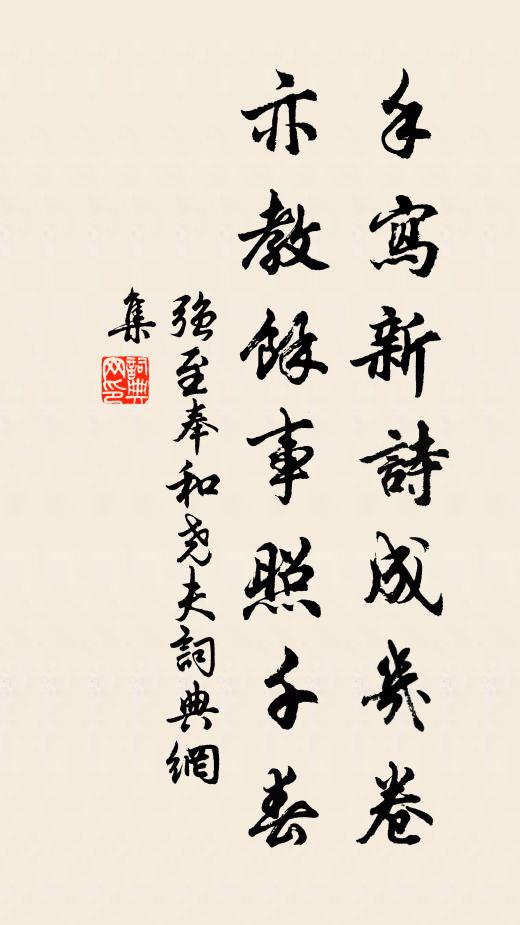 手寫新詩成幾卷
亦教餘事照千春
強至奉和尧夫詞典網
集
詞典网印